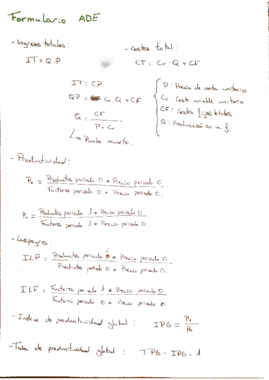 Formulario ADE
- Ingresos totales:
IT = Q·P
- Costes total:
CT = Cv·Q + CF
IT = CP
QP = Cv·Q + CF
Q = CF / P - Cv
↳ Punto muerto.
P: Precio de venta unitario
Cv: Coste variable unitario
CF: Costes fijos totales
Q: Producción en u.f.
- Productividad:
P₀ = Productos periodo 0 * Precio periodo 0 / Factores periodo 0 * Precio periodo 0.
P₁ = Productos periodo 1 * Precio periodo 0 / Factores periodo 1 * Precio periodo 0.
- Laspeyres:
ILP = Productos periodo 1 * Precio periodo 0 / Productos periodo 0 * Precio periodo 0.
ILF = Factores periodo 1 * Precio periodo 0 / Factores periodo 0 * Precio periodo 0
- Indice de productividad global: IPG = P₁ / P₀
- Tasa de productividad global: TPG = IPG - 1